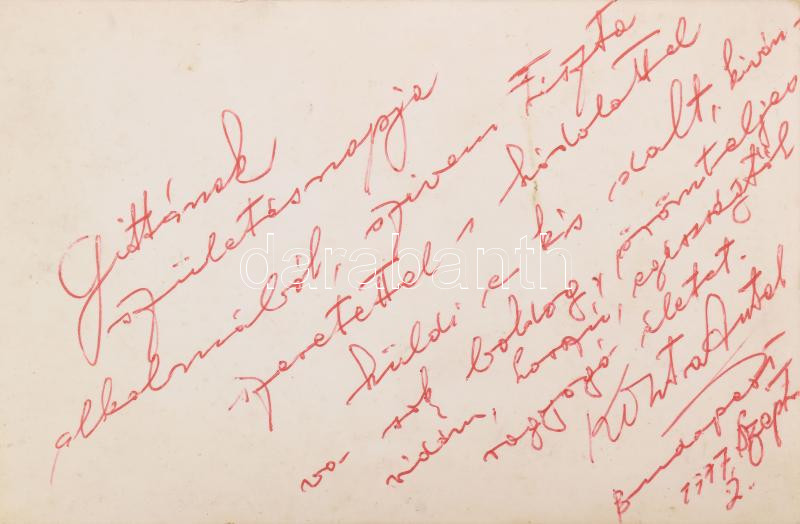 Gittának
születésnapja
alkalmából, szívem tiszta
szeretettel - hódolattal
küldi e kis dalt, kíván-
va sok boldog, örömteljes
vidám, hosszú, egészségtől
ragyogó életet.
Kóhta Antal
Budapest
Szept
2.
darabanth